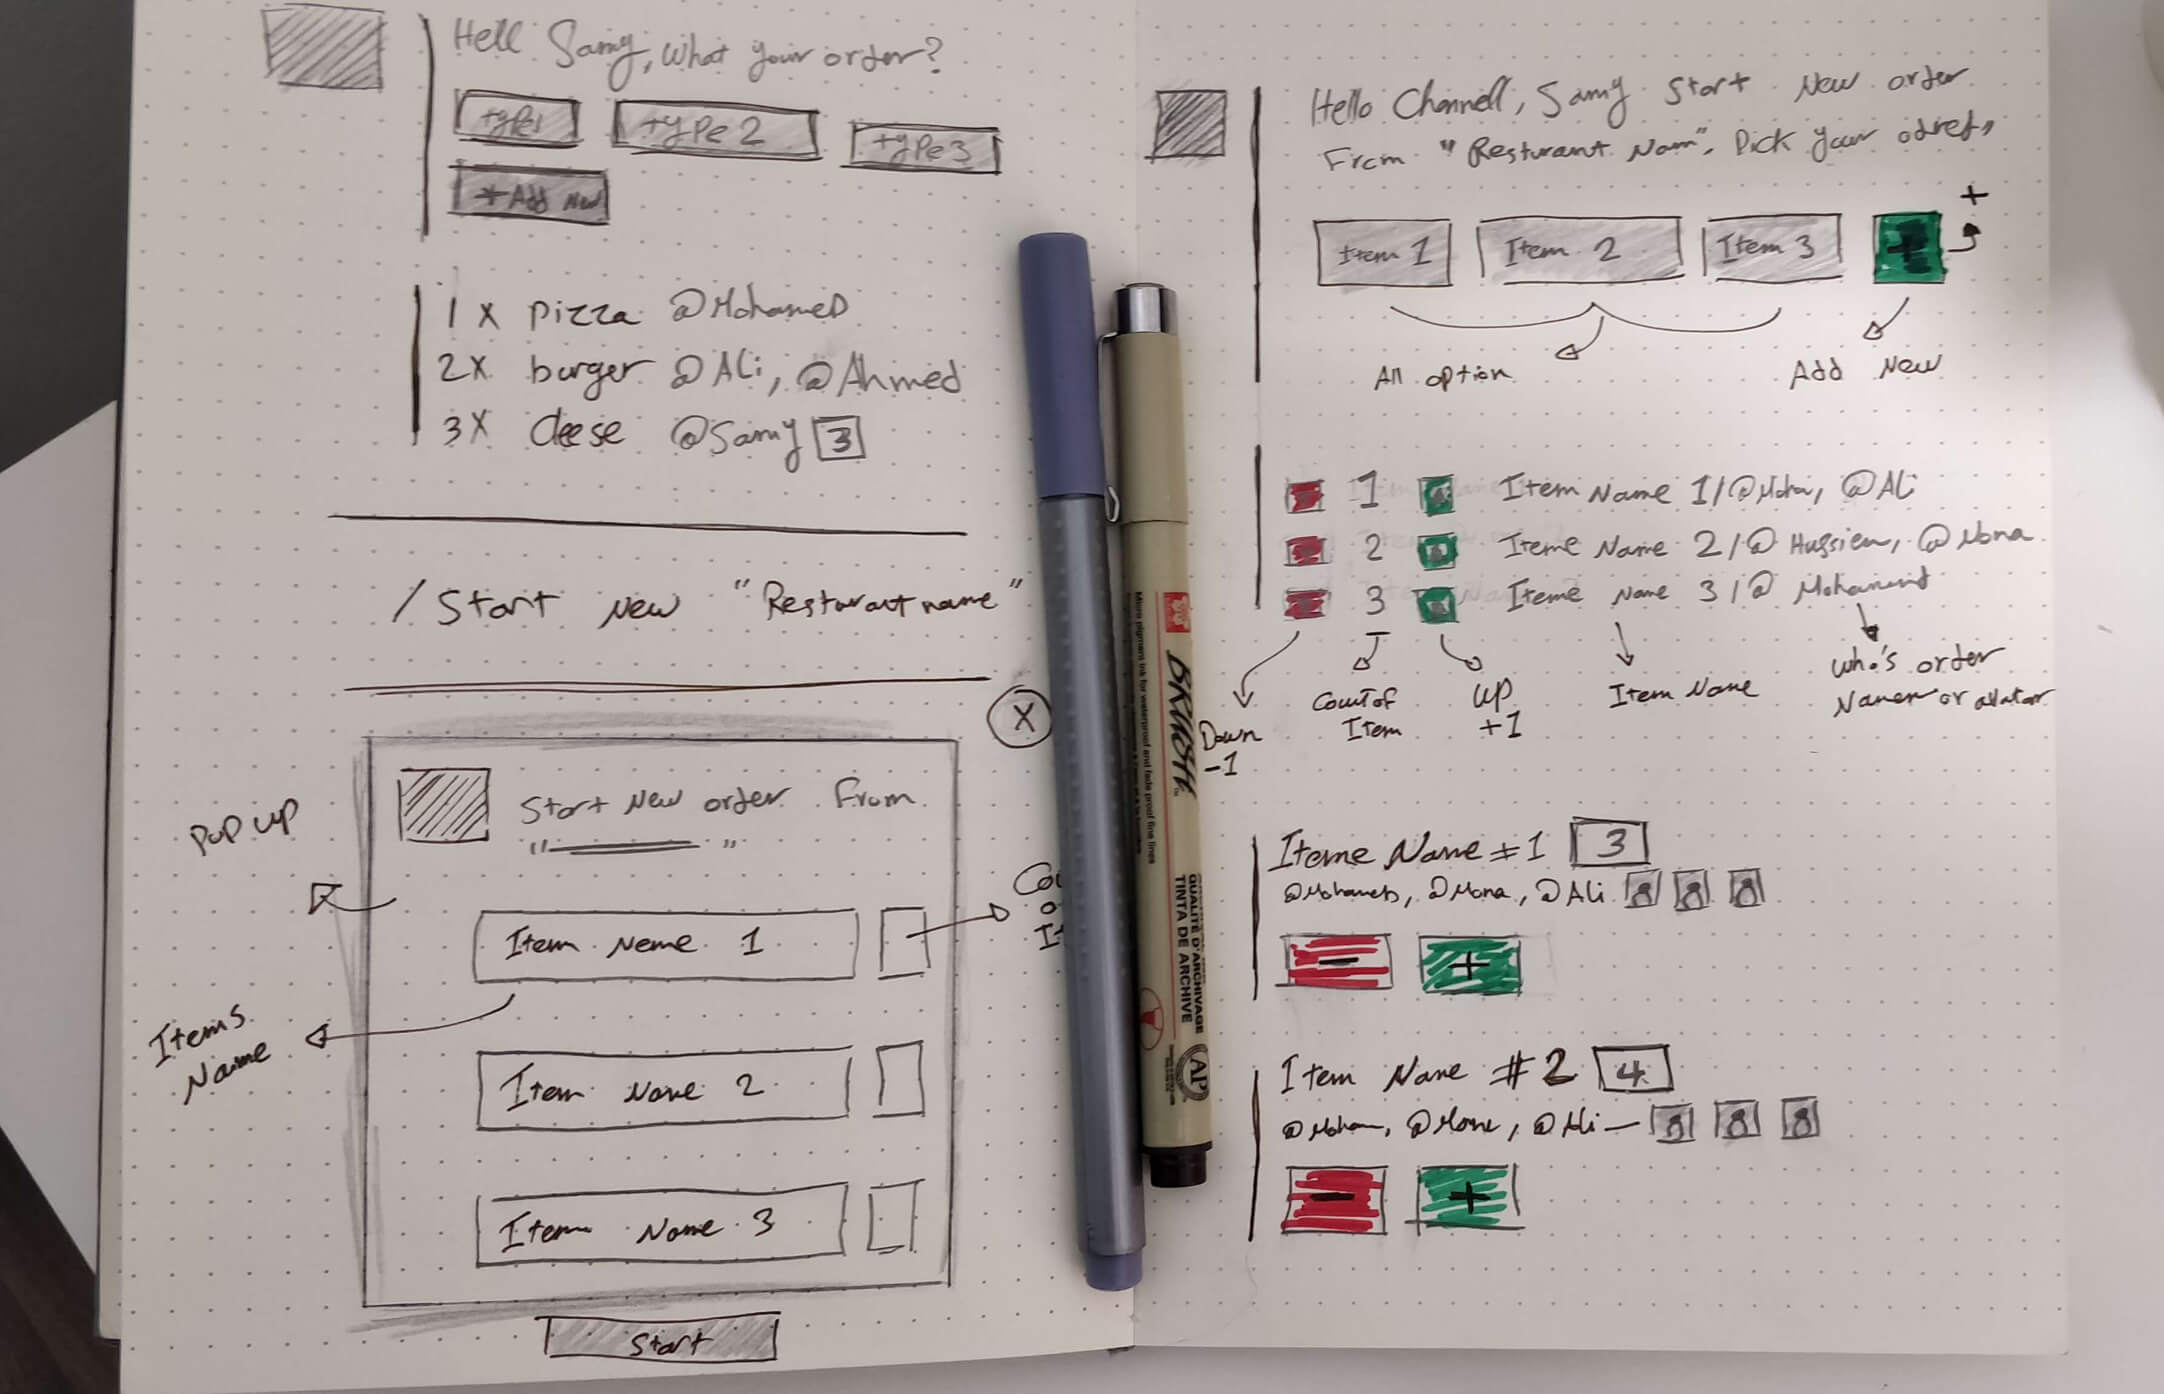 Hell Samy, What your order?
type1
type 2
type 3
+ Add New
1 x pizza @Mohamed
2x burger @Ali, @Ahmed
3x cleese @Samy 3
/ Start New "Resturant name"
X
Pop up
Start New order From
" "
Item Neme 1
Co
o
I
Items
Name
Item Name 2
Item Name 3
Start
BRUSH
Micro pigment ink for waterproof and fade proof fine lines
QUALITÉ D'ARCHIVAGE
TINTA DE ARCHIVE
AP
Hello Channell, Samy Start New order
From "Resturant Nam", Pick your odref,
Item 1
Item 2
Item 3
+
+
All option
Add New
1 Item Name 1/@Moha, @Ali
2 Iteme Name 2/@Hussien, @Mona
3 Iteme Name 3/@Mohamed
Down
-1
Count of
Item
up
+1
Item Name
who's order
Namen or avatar
Iteme Name #1 3
@Mohamed, @Mona, @Ali
- +
Item Name #2 4
@Moham, @Mone, @Ali –
- +